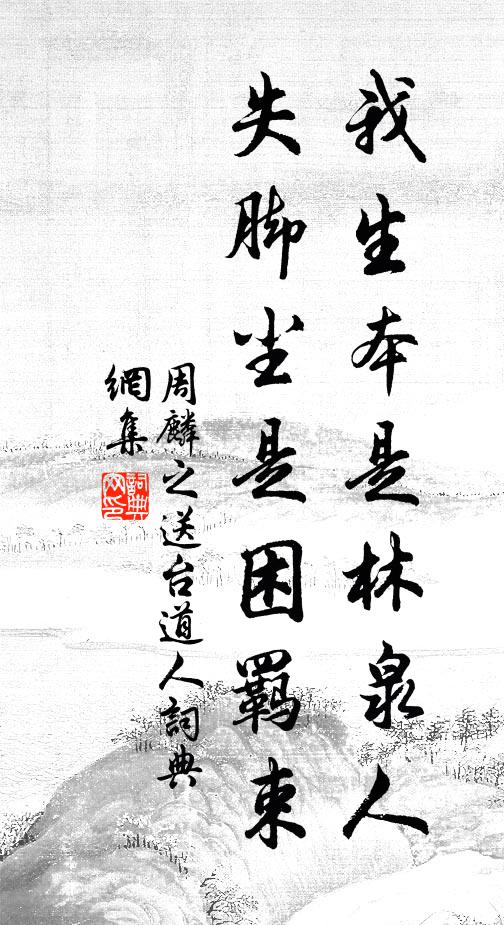 我生本是林泉人
失脚尘是困羁束
周麟之送台道人詞典
網集
詞典网印